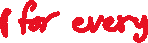 for every